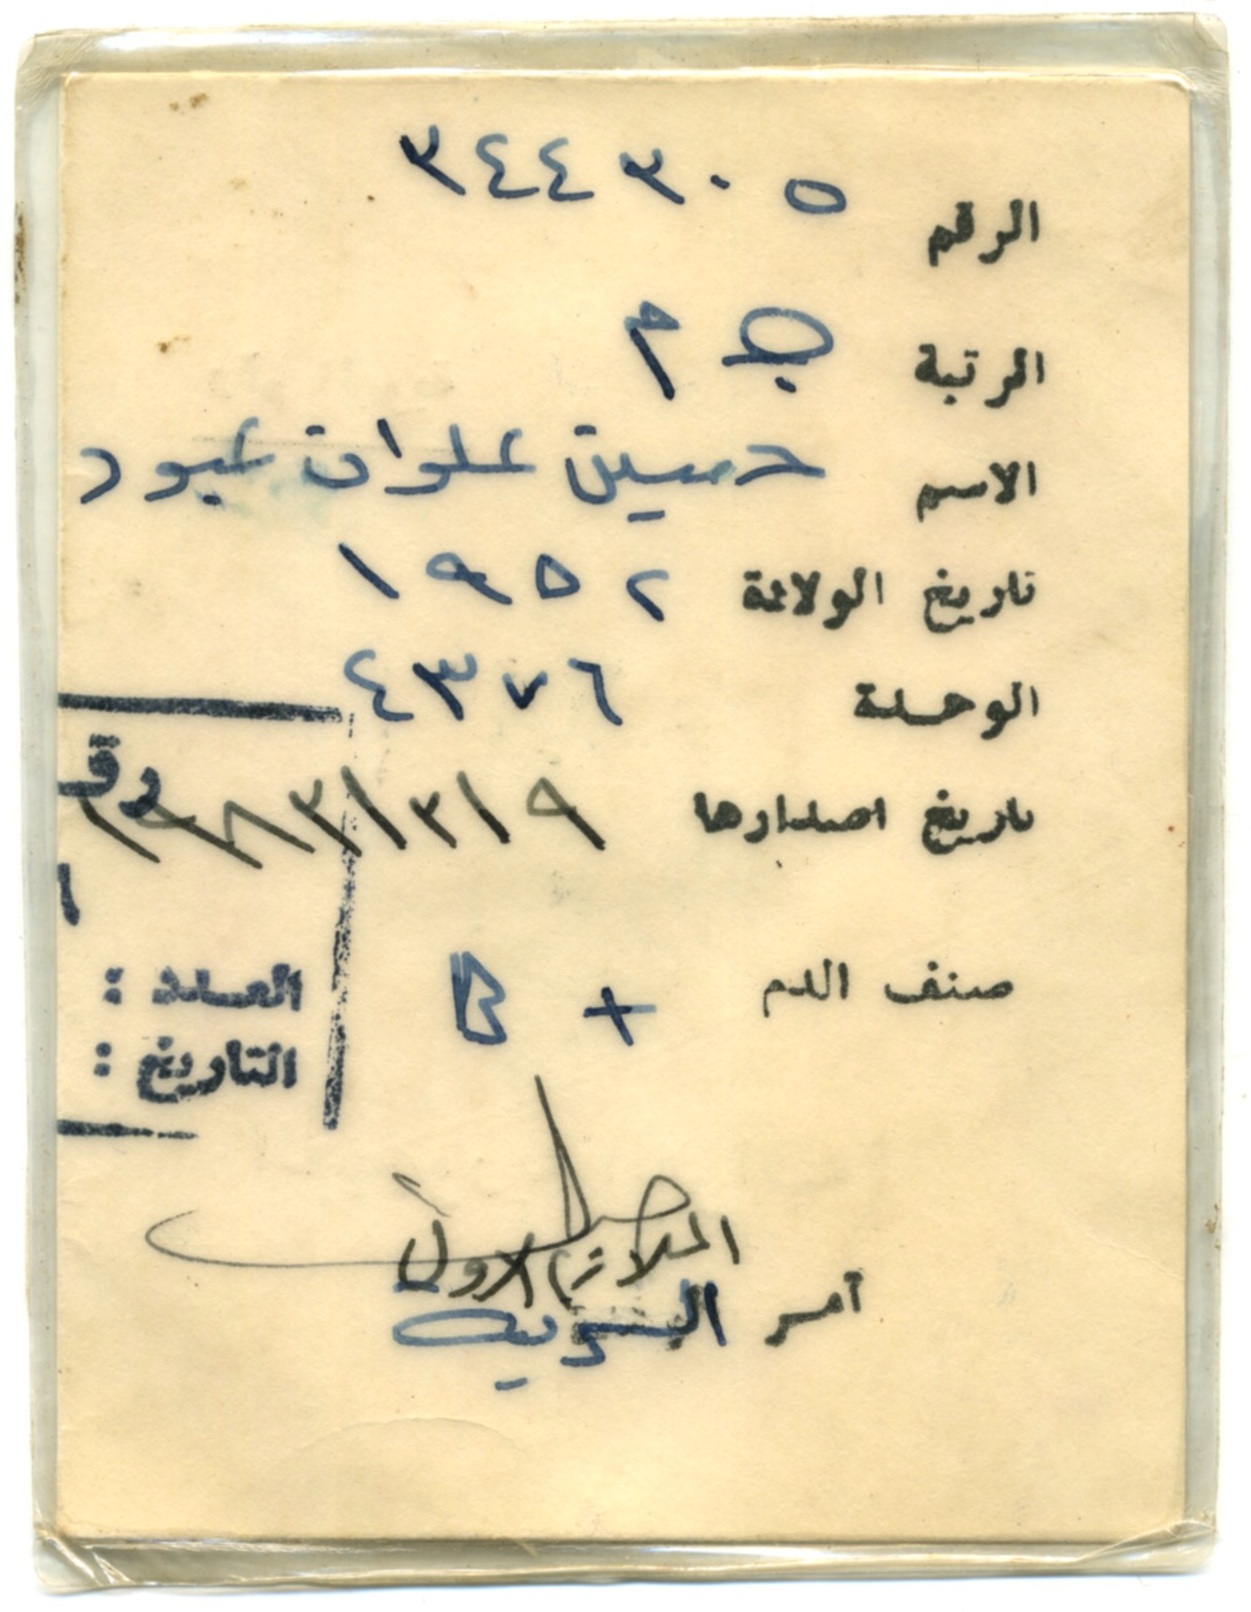 الرقم ٣٤٤٣٠٥
الرتبة ج م
الاسم حسين علوان عبود
تاريخ الولادة ١٩٥٢
الوحدة ٤٣٧٦
تاريخ اصدارها ١٩٨٣/٣/١٩
صنف الدم + B
العدد :
التاريخ :
الملازم الاول
آمر السرية